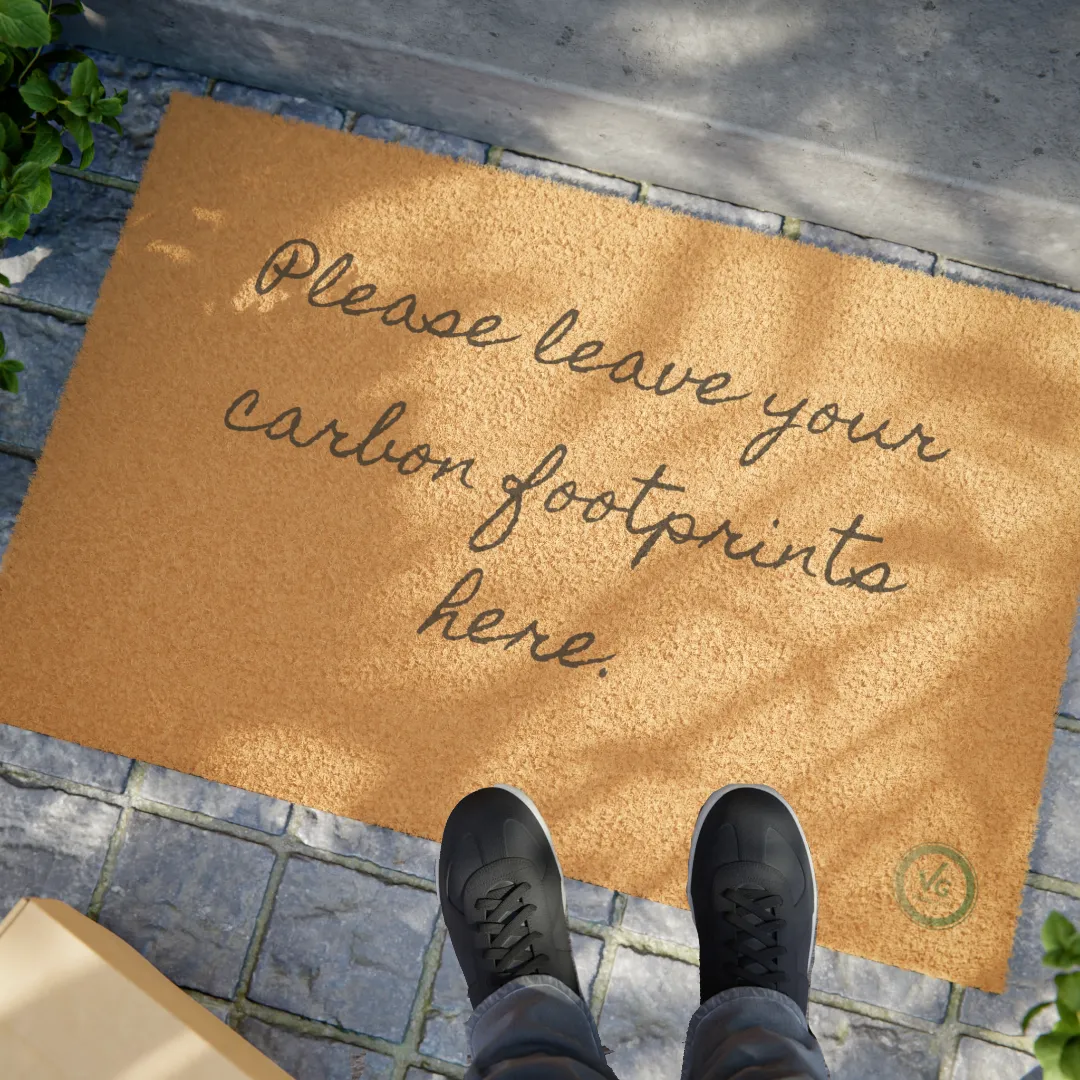 Please leave your
carbon footprints
here.
VG